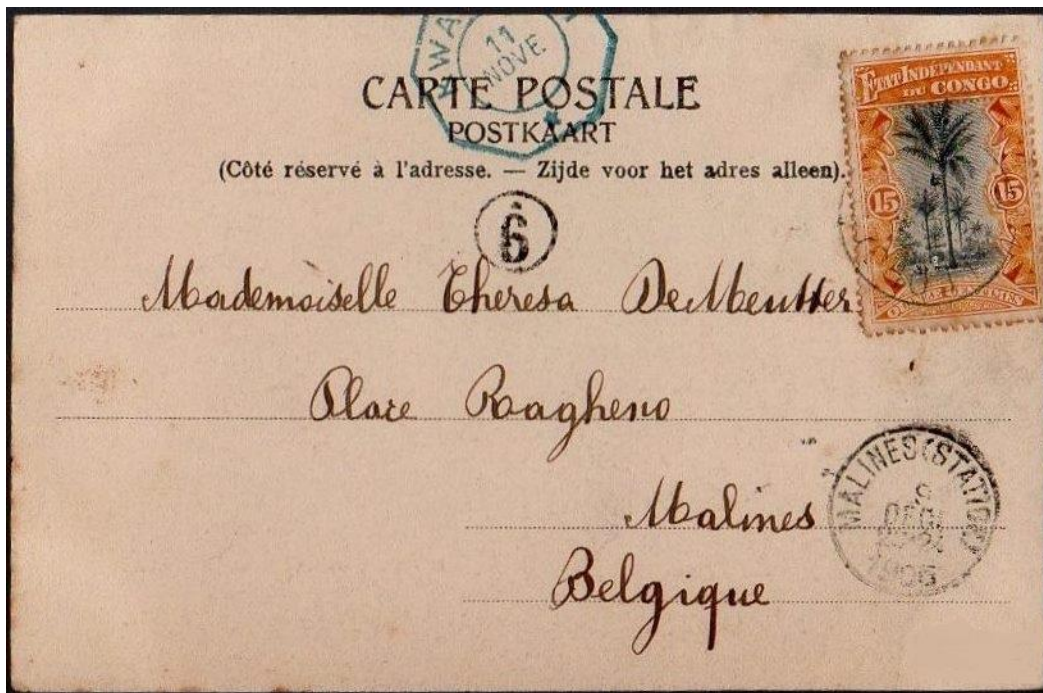 11
NOVE
CARTE POSTALE
POSTKAART
(Côté réservé à l'adresse. — Zijde voor het adres alleen).
ÉTAT INDÉPENDANT
DU CONGO
15 15
6
Mademoiselle Theresa DeMeutter
Place Ragheno
Malines
Belgique
MALINES (STATION)
9
DECE
1906